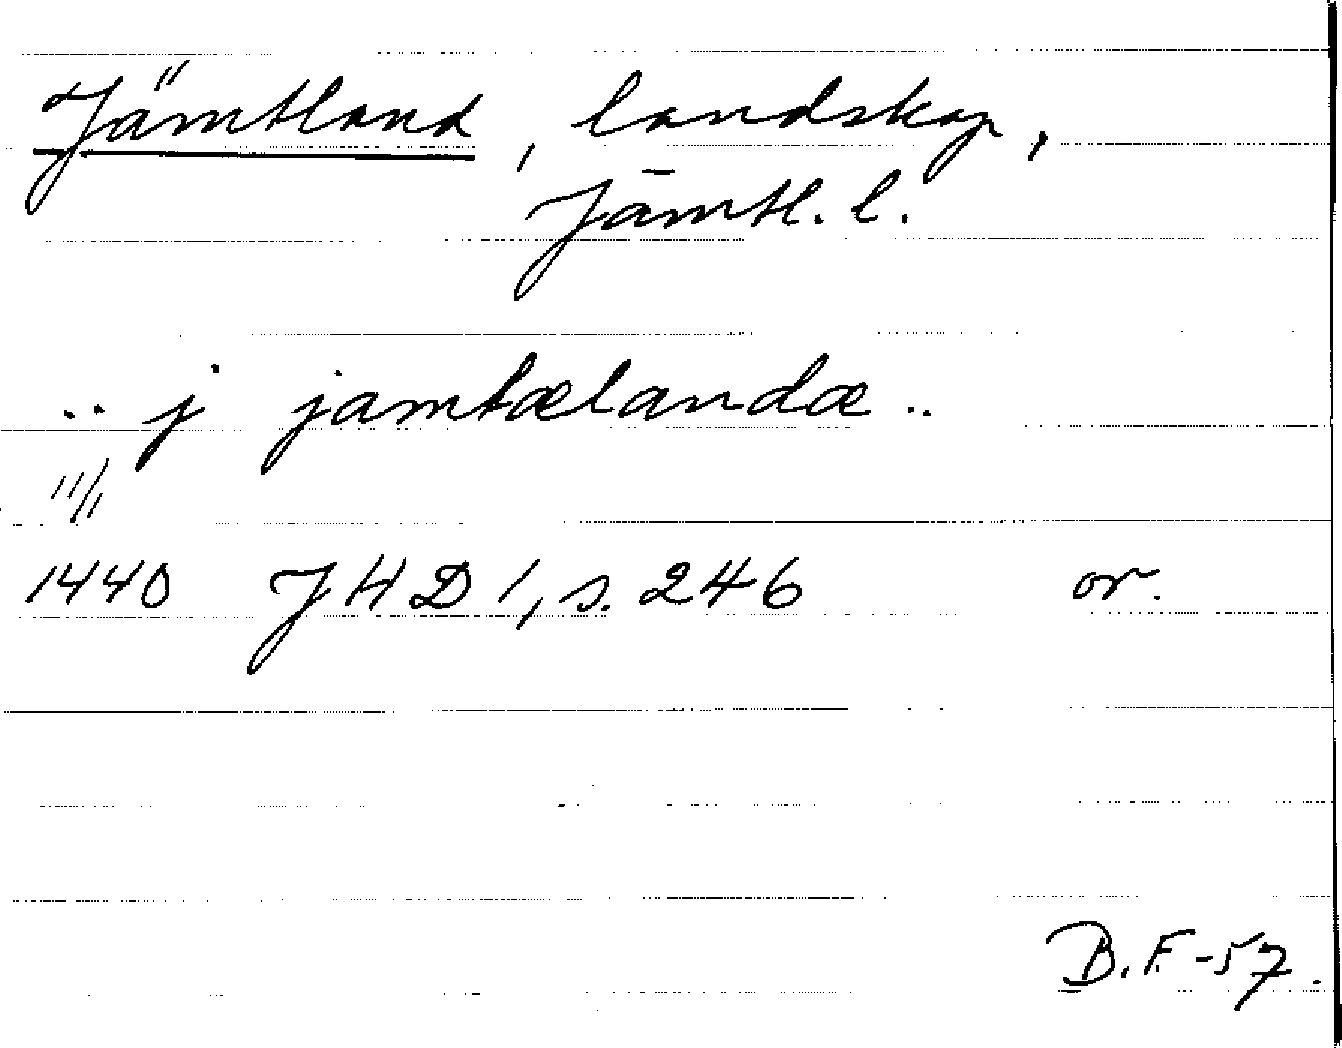 Jämtland, landskap,
Jämtl. l.
.. j jamtælandæ ..
11/1
1440 JHD 1, s. 246 or.
B.F. -57.